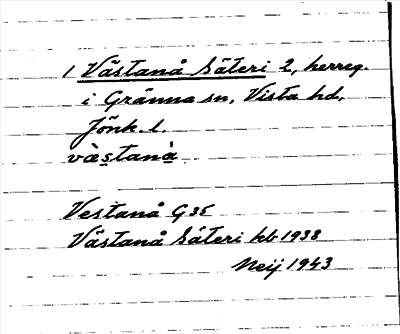 1 Västanå Säteri 2, herreg.
i Gränna sn, Vista hd,
Jönk. l.
väs̀tanà
Vestanå G35
Västanå Säteri kb 1938
Neij 1943